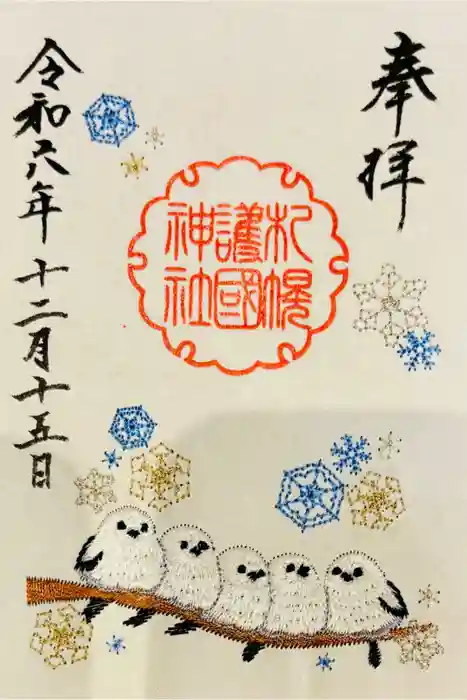 奉拝
札幌
護國
神社
令和六年十二月十五日